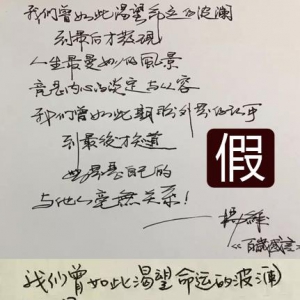 我们曾如此渴望命运的波澜
到最后才发现
人生最曼妙的風景
竟是内心的淡定与从容
我们曾如此期盼外界的认可
到最後才知道
世界是自己的
与他人毫無关系!
假
——杨绛
《百歲感言》
我们曾如此渴望命运的波澜